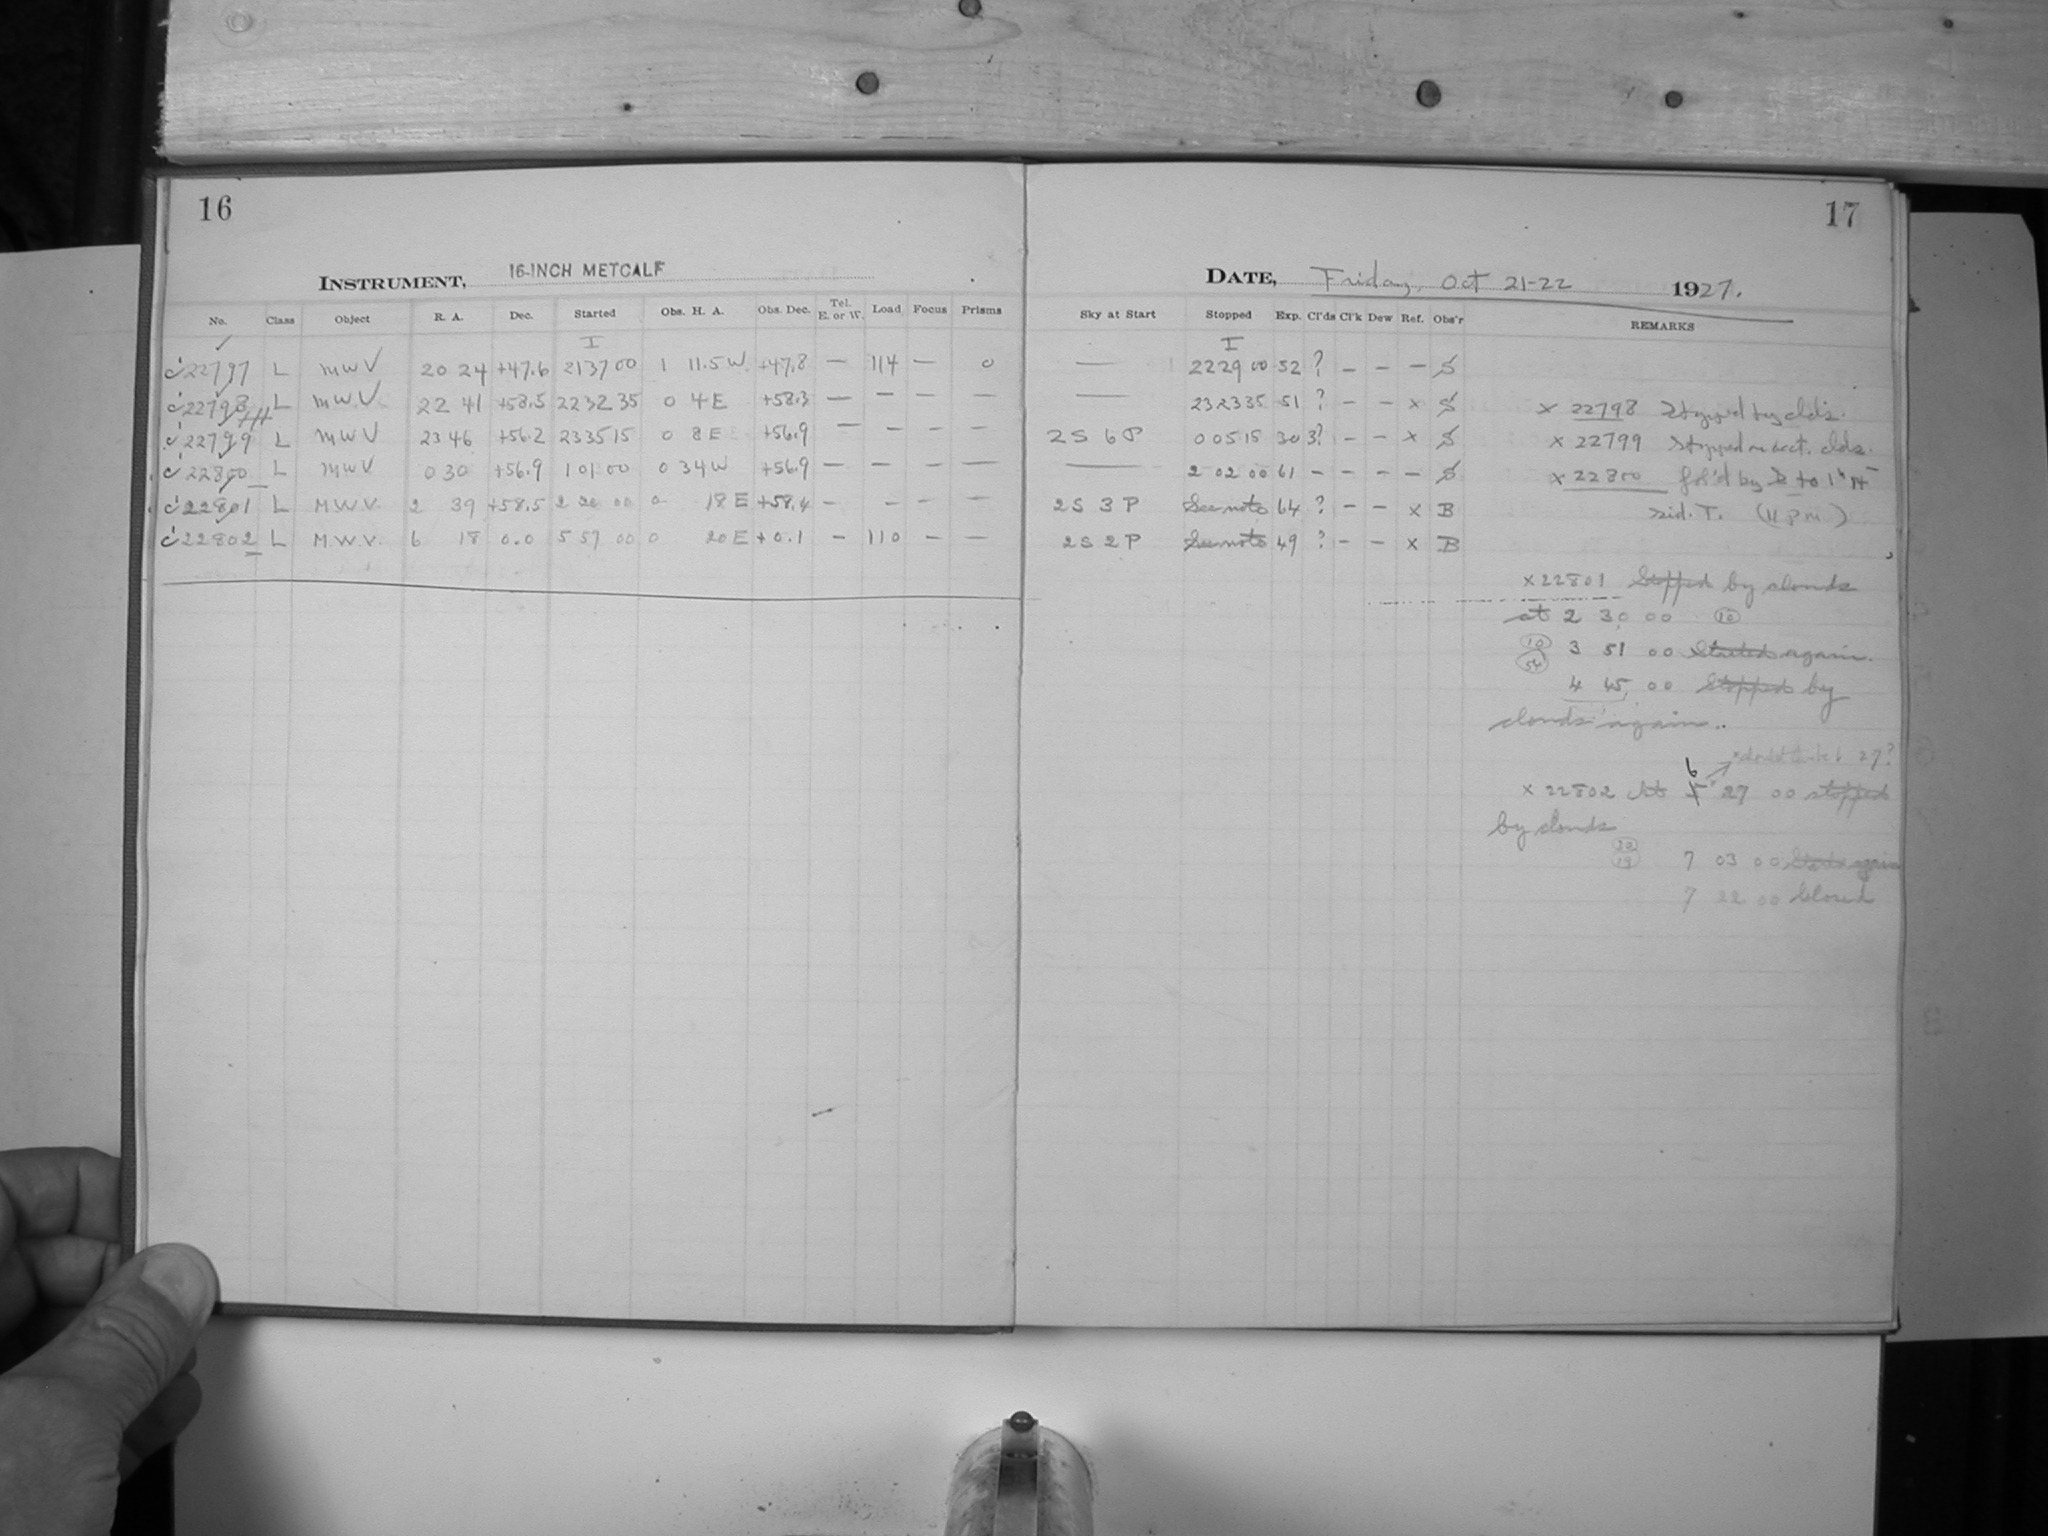 16
17
INSTRUMENT, 16-INCH METCALF
DATE, Friday, Oct 21-22 1927.
No. Class Object R. A. Dec. Started Obs. H. A. Obs. Dec. Tel. E. or W. Load Focus Prisms Sky at Start Stopped Exp. Cl'ds Cl'k Dew Ref. Obs'r REMARKS
I I
22797 L MWV 20 24 +47.6 2137 00 1 11.5 W +47.8 — 114 — 0 — 2229 00 52 ? – – – S
22798 L MWV 22 41 +58.5 2232 35 0 4 E +58.3 — – – — 232335 51 ? – – x S x 22798 Stopped by clds.
22799 L MWV 23 46 +56.2 233515 0 8 E +56.9 — – – — 2S 6P 00515 30 3? – – x S x 22799 Stopped on acct. clds.
22800 L MWV 0 30 +56.9 10100 0 34W +56.9 — – – — — 2 02 00 61 – – – – S x 22800 fol'd by to 1h
22801 L M.W.V. 2 39 +58.5 2 20 00 0 18 E +58.4 – – – — 2S 3P See note 64 ? – – x B Sid. T. (11 pm)
22802 L M.W.V. 6 18 0.0 5 57 00 0 20 E +0.1 – 110 – — 2S 2P See note 49 ? – – x B
x 22801 Stopped by clouds
at 2 30 00 10
10 3 51 00 Started again.
54 4 45 00 Stopped by
clouds again.
27?
6
x 22802 At 5 27 00 stopped
by clouds
30
19 7 03 00 Started again
7 22 00 Closed